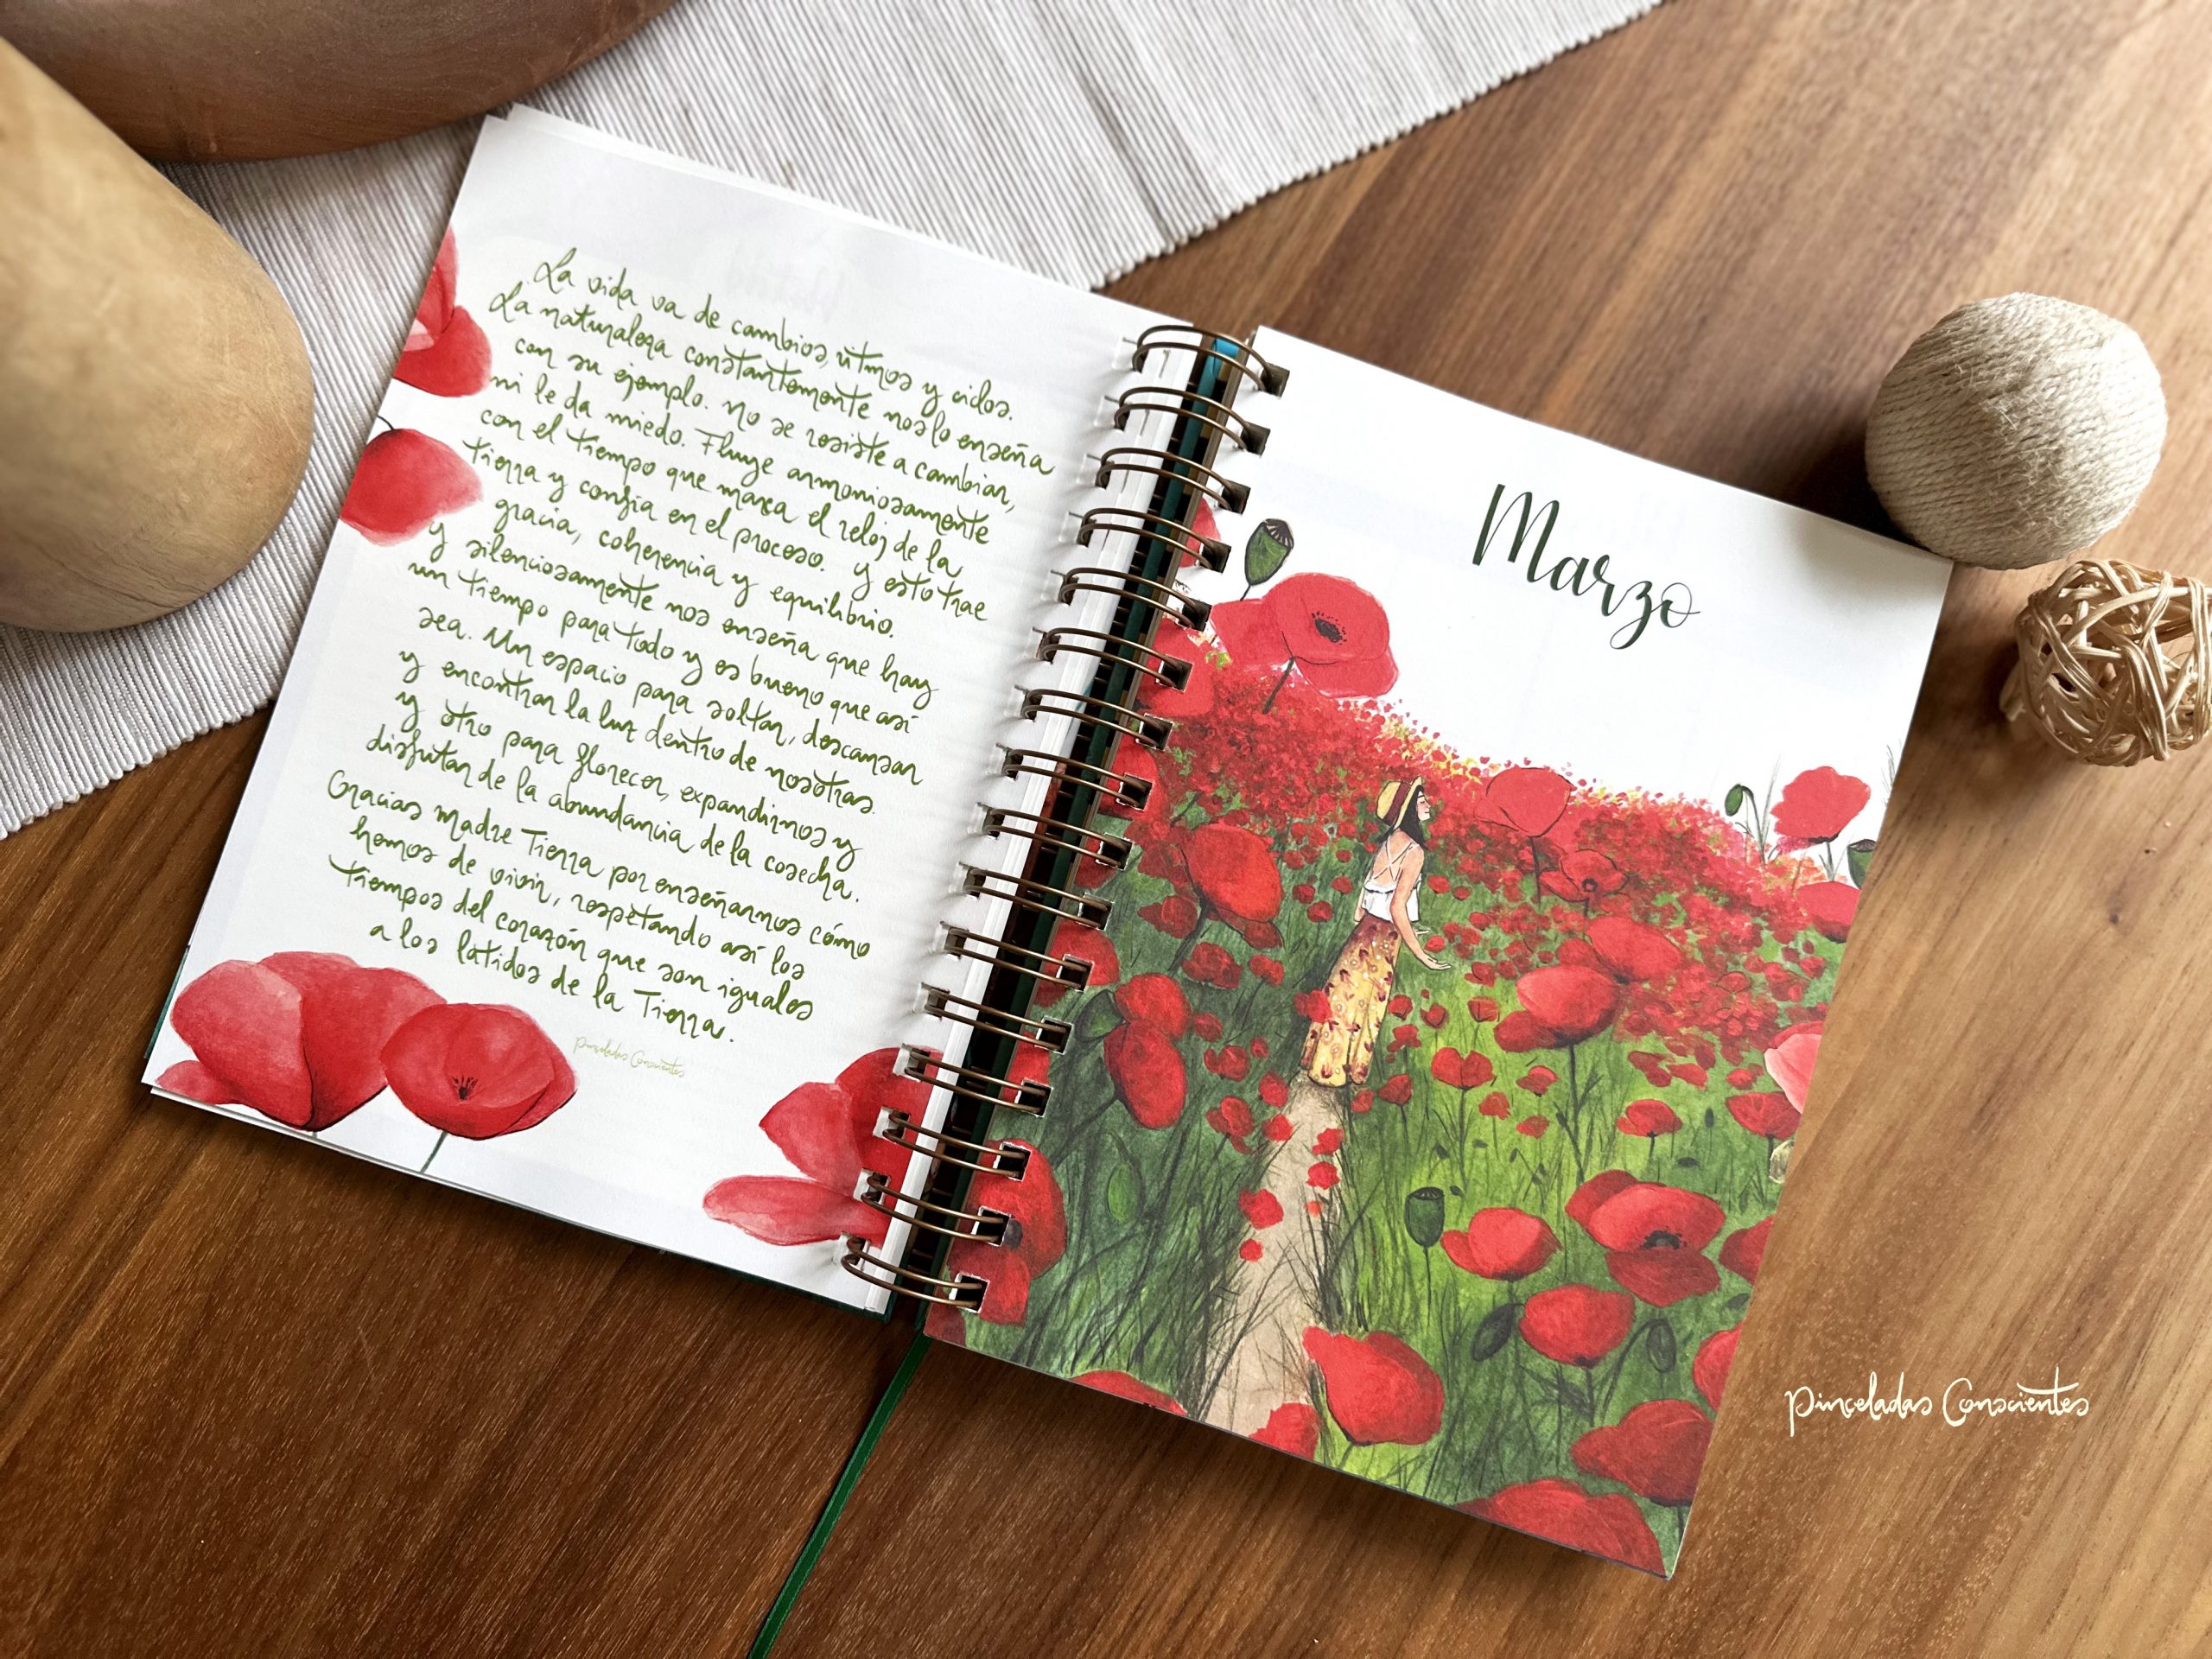 La vida va de cambios, ritmos y ciclos.
La naturaleza constantemente nos lo enseña
con su ejemplo. No se resiste a cambiar,
ni le da miedo. Fluye armoniosamente
con el tiempo que marca el reloj de la
tierra y confía en el proceso. Y esto trae
gracia, coherencia y equilibrio.
y silenciosamente nos enseña que hay
un tiempo para todo y es bueno que así
sea. Un espacio para soltar, descansar
y encontrar la luz dentro de nosotras.
y otro para florecer, expandirnos y
disfrutar de la abundancia de la cosecha.
Gracias Madre Tierra por enseñarnos cómo
hemos de vivir, respetando así los
tiempos del corazón que son iguales
a los latidos de la Tierra.
Pinceladas Conscientes
Marzo
Pinceladas Conscientes